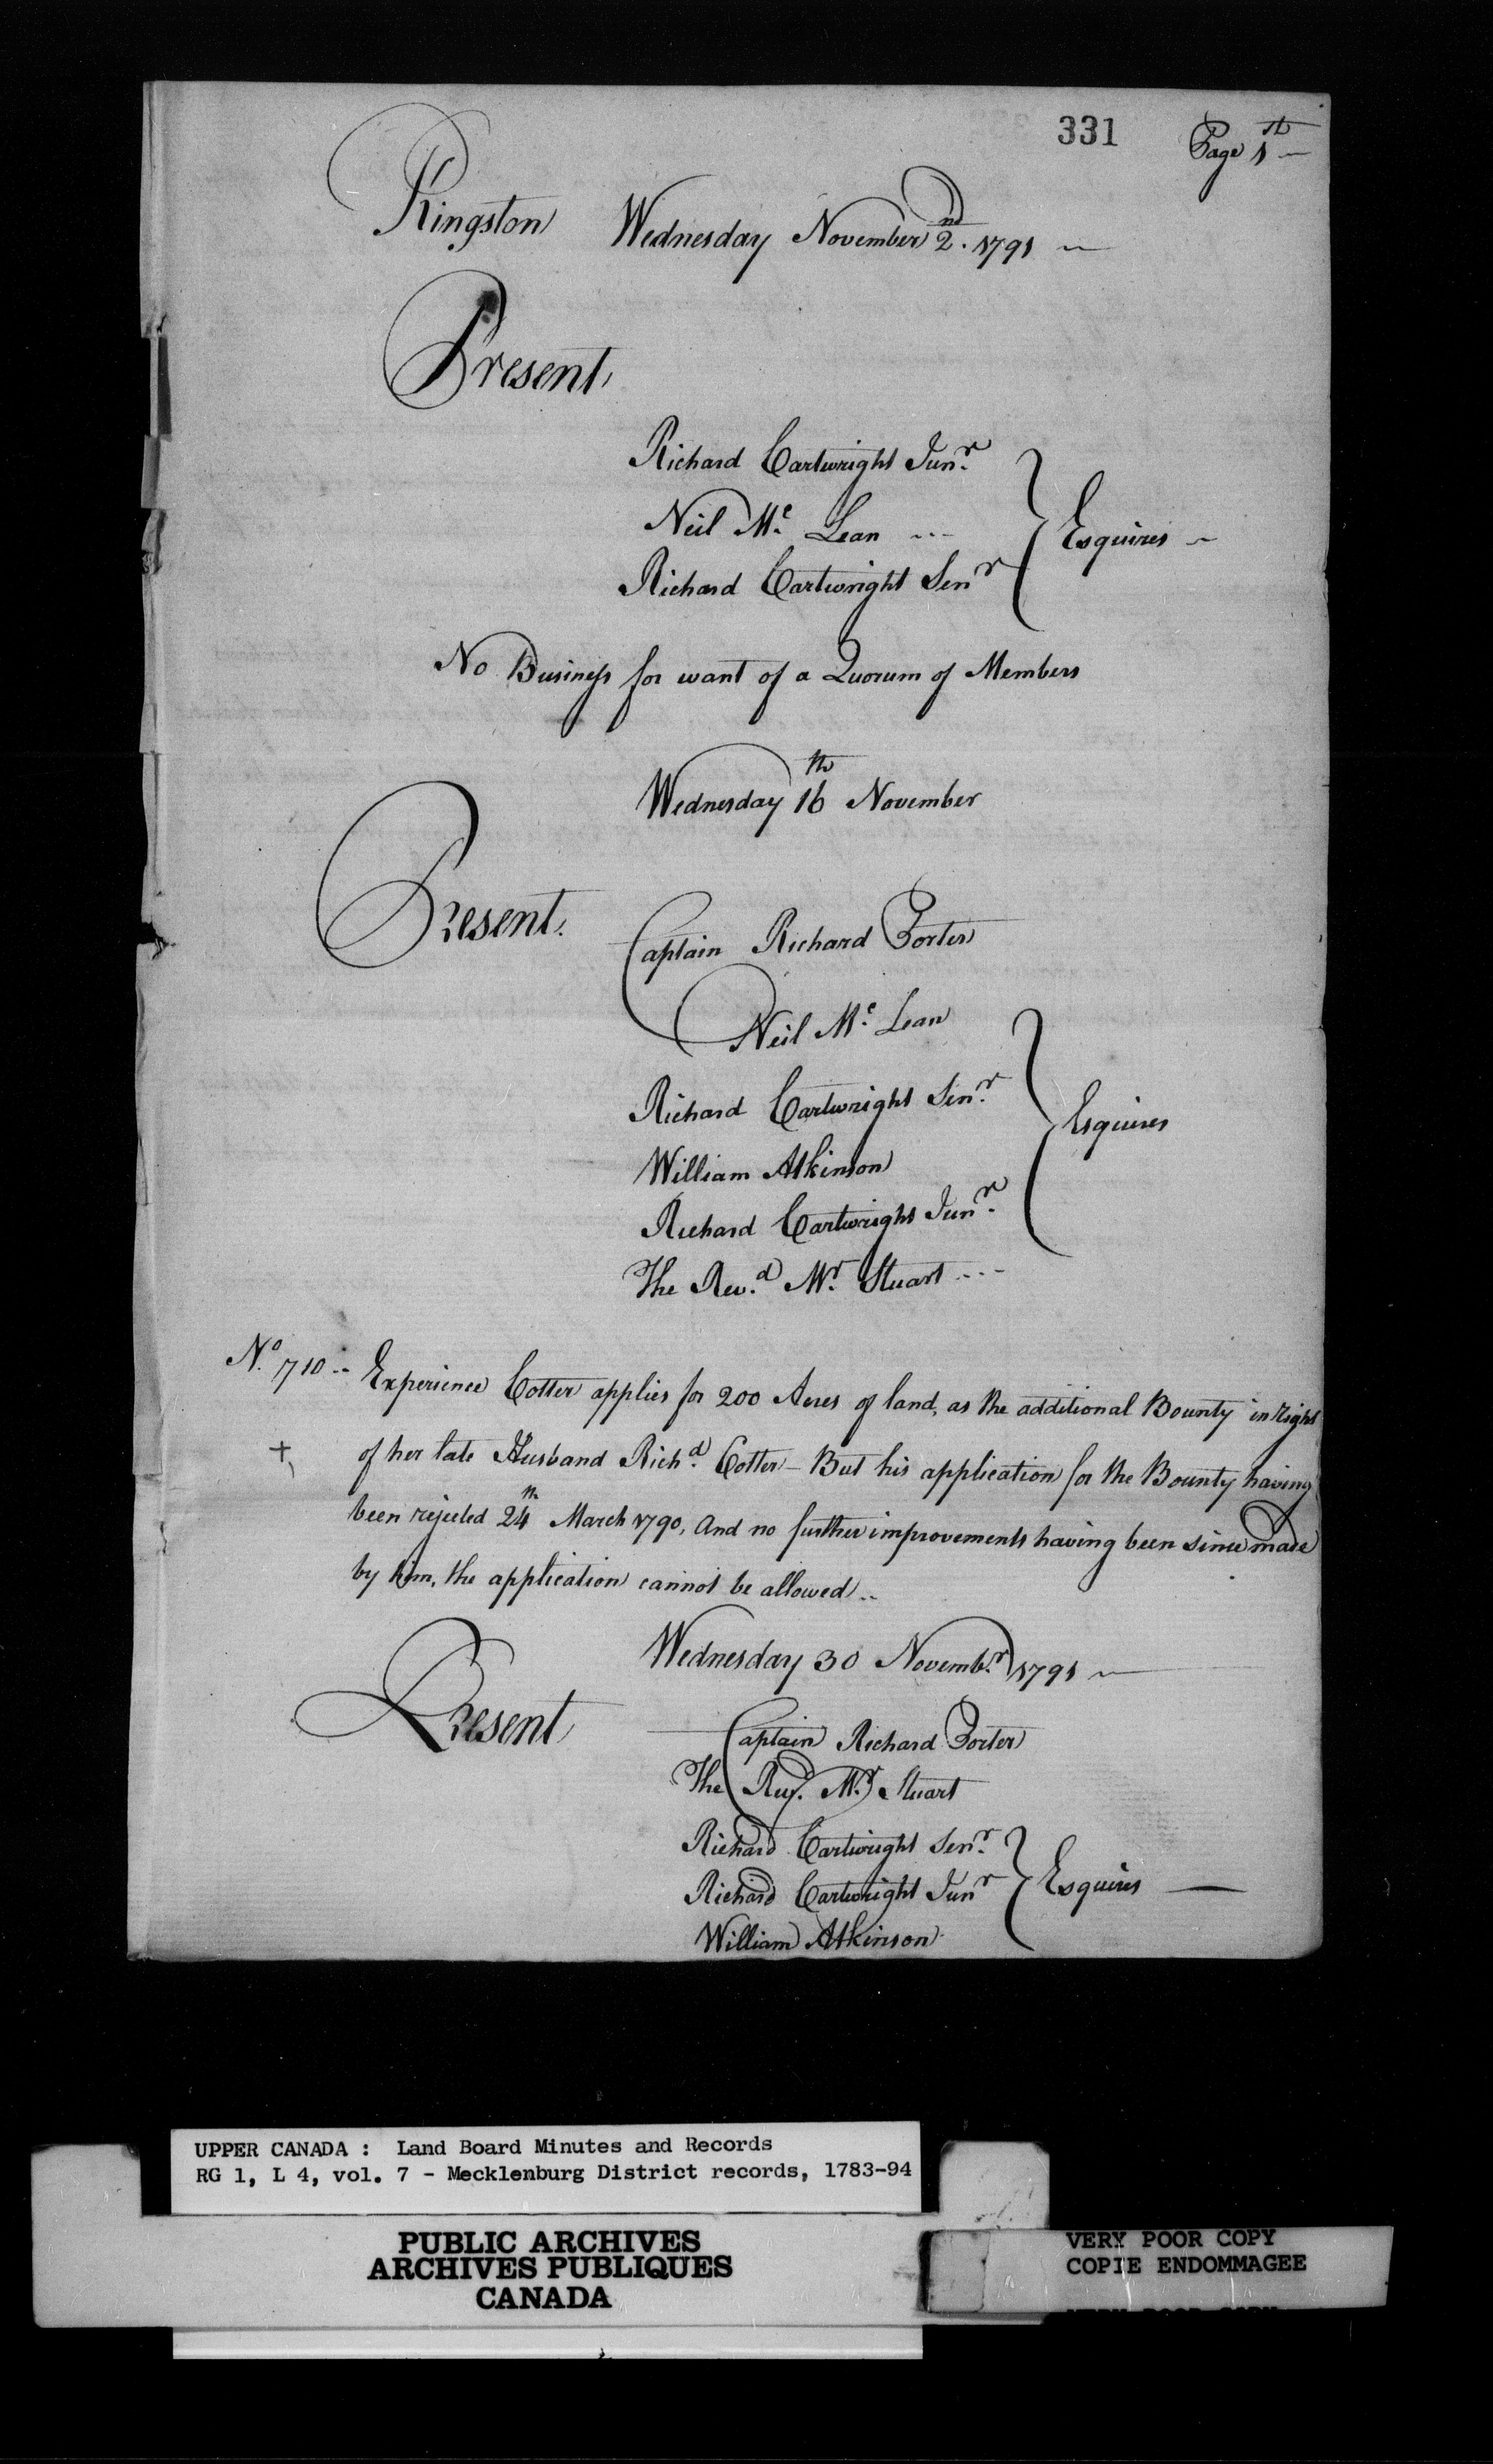 331
Page 1st —
Kingston Wednesday November 2nd. 1791 —
Present,
Richard Cartwright Junr.
Neil Mc. Lean ---
Esquires —
Richard Cartwright Senr
No Business for want of a Quorum of Members
Wednesday 16th November
Present.
Captain Richard Porter
Neil Mc. Lean
Richard Cartwright Senr.
Esquires
William Atkinson
Richard Cartwright Junr.
The Revd. Mr. Stuart ---
No. 710 -- Experience Cotter applies for 200 Acres of land, as the additional Bounty in Right
+ of her late Husband Richd. Cotter – But his application for the Bounty having
been rejected 24th March 1790, And no further improvements having been since made
by him, the application cannot be allowed --
Wednesday 30 Novembr. 1791 —
Present
Captain Richard Porter
The Revd. Mr. Stuart
Richard Cartwright Senr.
Richard Cartwright Junr
Esquires —
William Atkinson
UPPER CANADA : Land Board Minutes and Records
RG 1, L 4, vol. 7 - Mecklenburg District records, 1783-94
PUBLIC ARCHIVES
ARCHIVES PUBLIQUES
CANADA
VERY POOR COPY
COPIE ENDOMMAGEE
VERY POOR COPY